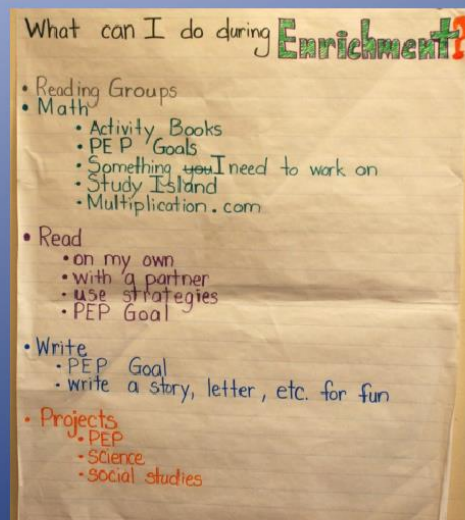 What can I do during Enrichment?
• Reading Groups
• Math
• Activity Books
• PEP Goals
• Something you I need to work on
• Study Island
• Multiplication.com
• Read
• on my own
• with a partner
• use strategies
• PEP Goal
• Write
• PEP Goal
• write a story, letter, etc. for fun
• Projects
• PEP
• science
• social studies